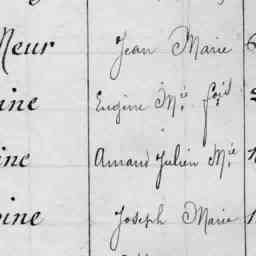 Neur Jean Marie
ine Eugène Mie fois
ine Amand Julien Mie
oine Joseph Marie